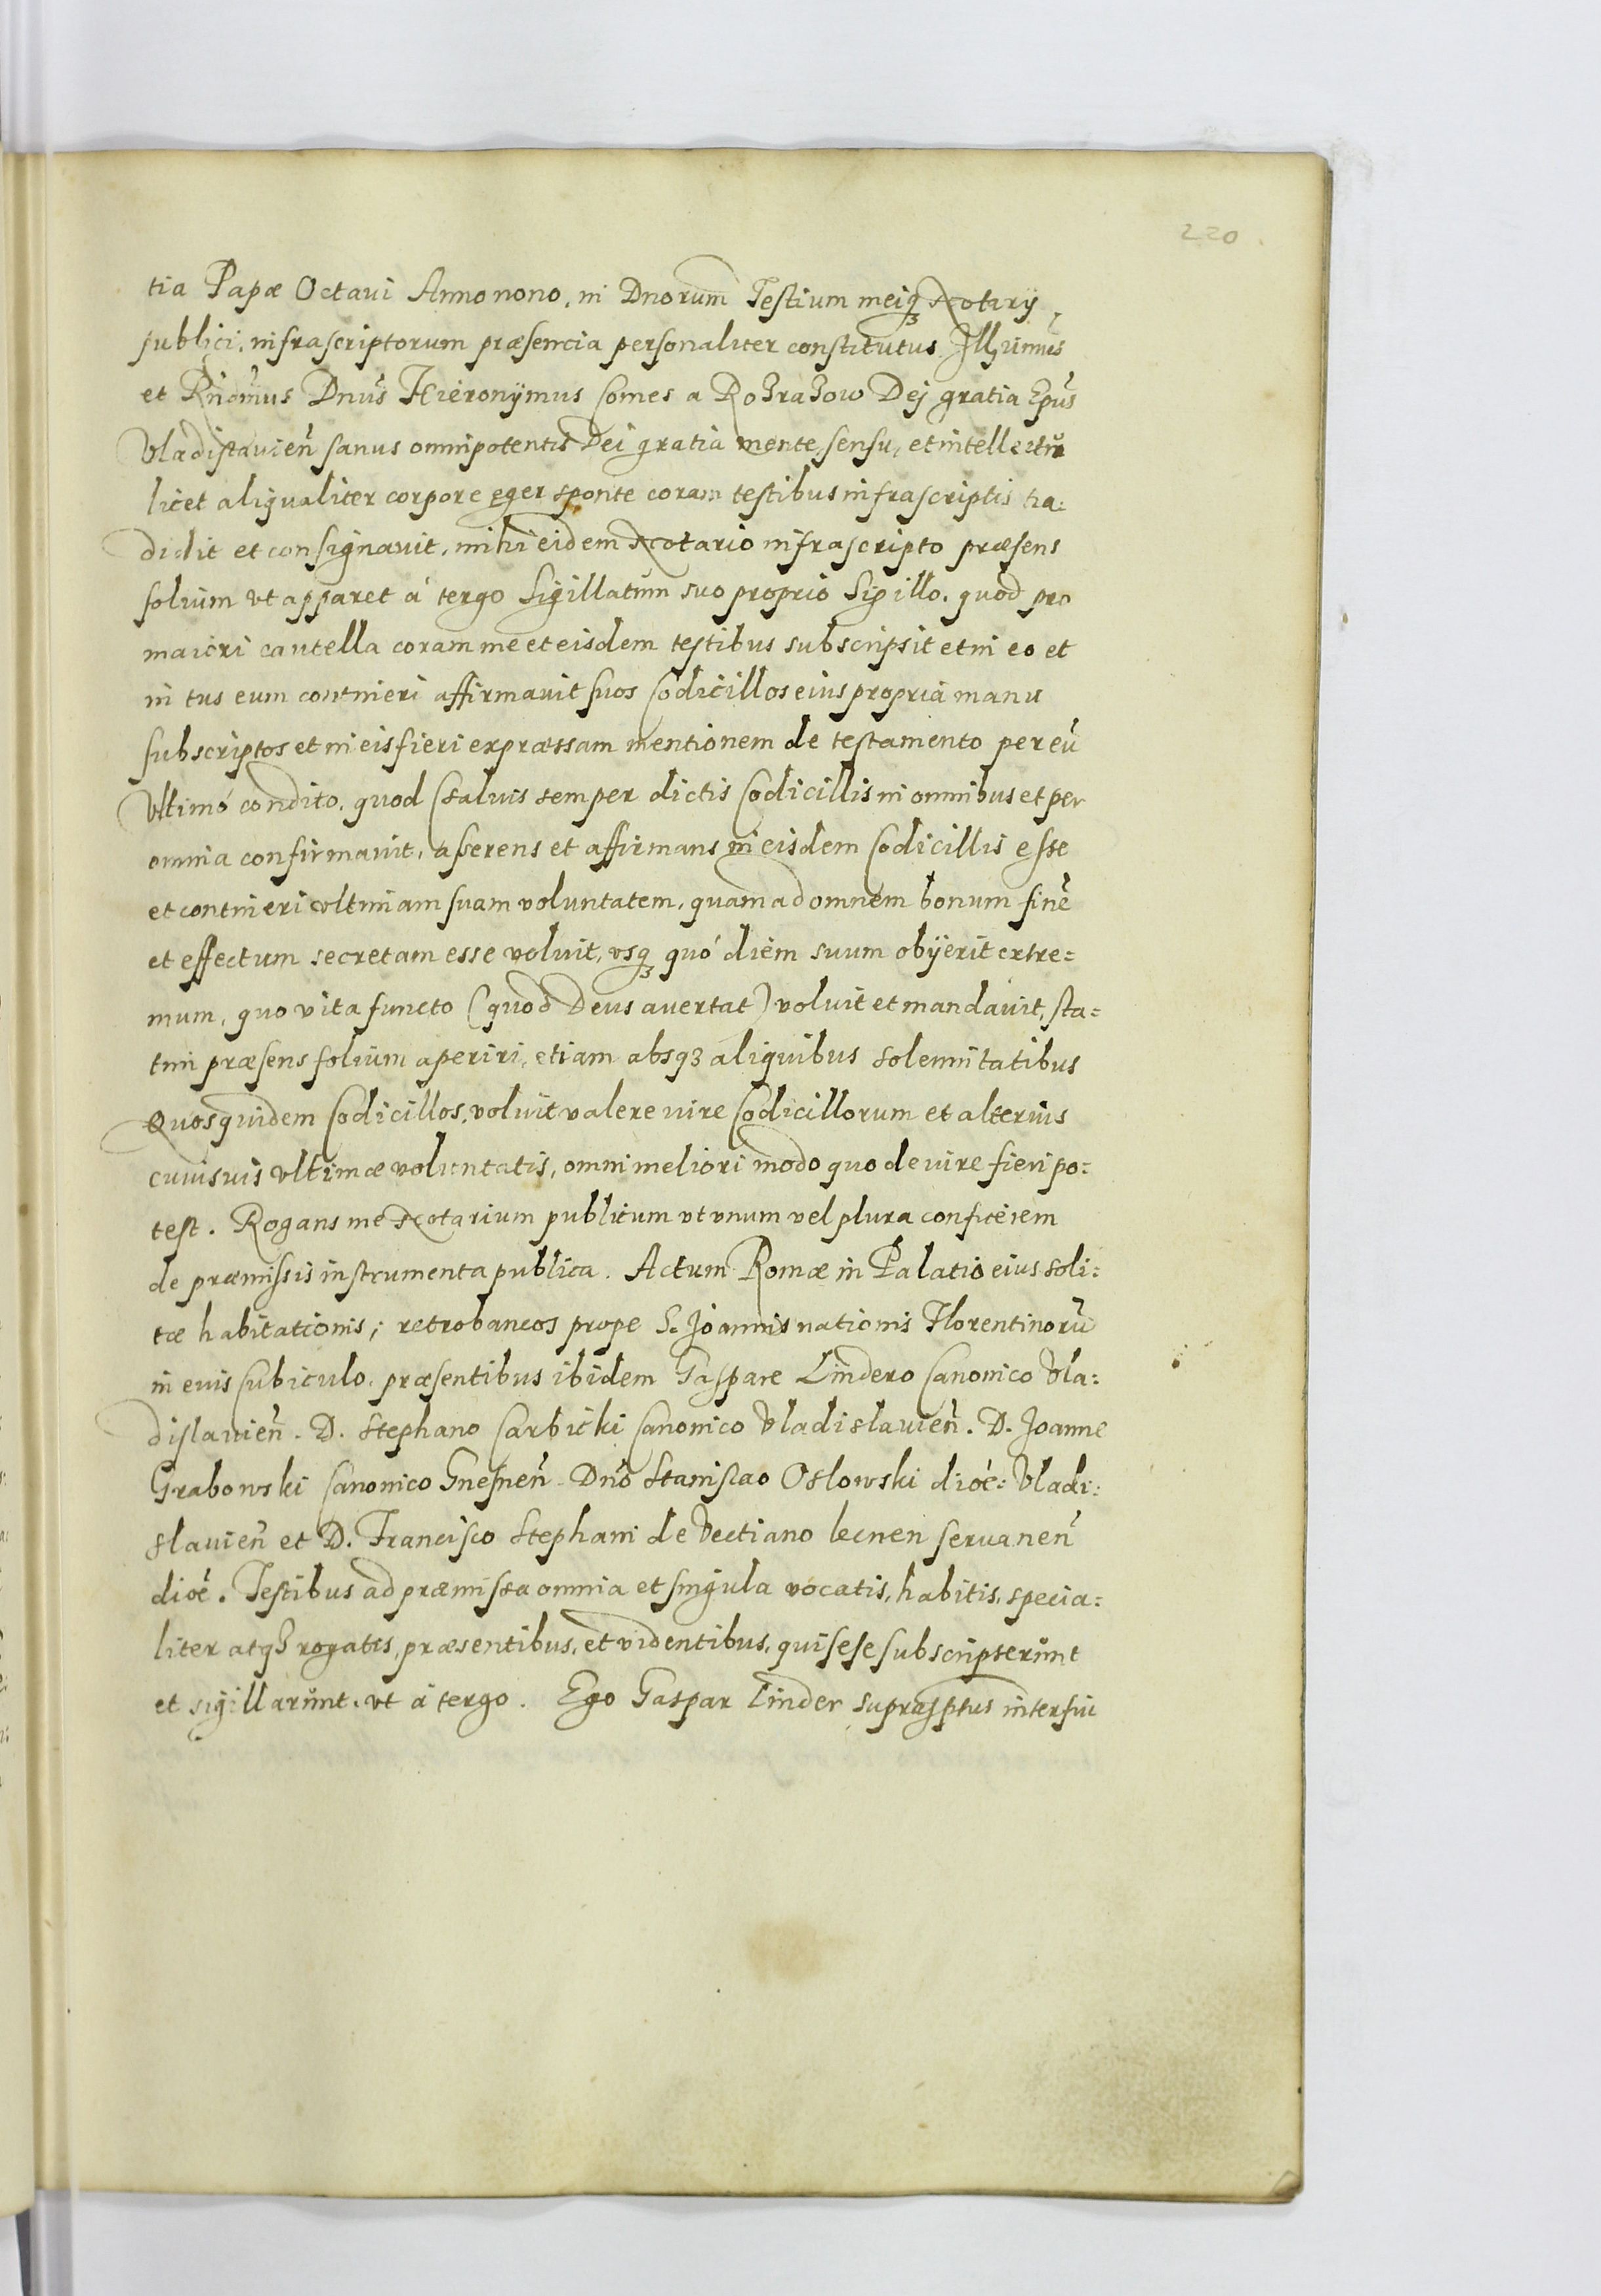 220
tia Papæ Octaui Anno nono, in Dnorum Testium meiq₃ Notarij
publici, infrascriptorum præsencia personaliter constitutus Illɥimus
et Rndmus Dnus Hieronÿmus Comes a Rozrazow Dej gratia Epus
Vladislauien̄ sanus omnipotentis Dei gratia mente, sensu, et intellectu
licet aliqualiter corpore eger sponte coram testibus infrascriptis tra:
didit et consignauit, mihi eidem Notario infrascripto præsens
folium vt apparet á tergo Sigillatum suo proprio Sigillo, quod pro
maiori cautella coram me et eisdem testibus subscripsit et in eo et
in tus eum contineri affirmauit suos Codicillos eius propria manu
subscriptos et in eis fieri expræssam mentionem de testamento per eū
Vltimó condito, quod (saluis semper dictis Codicillis in omnibus et per
omnia confirmauit, asserens et affirmans in eisdem Codicillis esse
et contineri vltimam suam voluntatem, quam ad omnem bonum finē
et effectum secretam esse voluit, vsq₃ quó diem suum obÿerit extre=
mum, quo vita functo (quod Deus auertat) voluit et mandauit, sta=
tim præsens folium aperiri, etiam absq₃ aliquibus solemnitatibus
Quosquidem Codicillos, voluit valere iure Codicillorum et alterius
cuiusuis vltimæ voluntatis, omni meliori modo quo de iure fieri po:
test. Rogans me Notarium publicum vt vnum vel plura conficerem
de præmissis instrumenta publica. Actum Romæ in Palatio eius soli:
tæ habitationis, retrobancos prope S. Joannis nationis Florentinorū
in euis Cubiculo, præsentibus ibidem Gaspare Lindero Canonico Vla:
dislauien̄. D. Stephano Sarbicki Canonico Vladislauien̄. D. Joanne
Grabowski Canonico Gnesnen̄ Dno Stanislao Oslowski dioć: Vladi:
slauien̄ et D. Francisco Stephani de Vectiano lecnen seruanen̄
dioć. Testibus ad præmissa omnia et singula vocatis, habitis, specia:
liter atq₃ rogatis, præsentibus, et videntibus, qui sese subscripserunt
et sigillarunt, vt á tergo. Ego Gaspar Linder suprasptus interfui